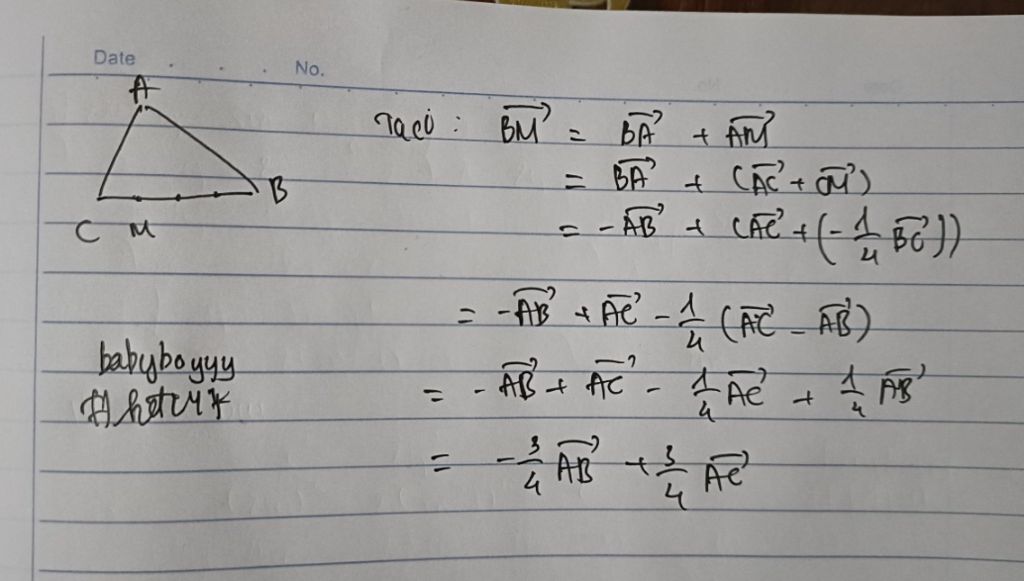 Date No.
A
B
C M
Ta có : BM→ = BA→ + AM→
= BA→ + (AC→ + CM→)
= -AB→ + (AC→ + (-1/4 BC→))
= -AB→ + AC→ - 1/4 (AC→ - AB→)
= -AB→ + AC→ - 1/4 AC→ + 1/4 AB→
= -3/4 AB→ + 3/4 AC→
babyboyyy